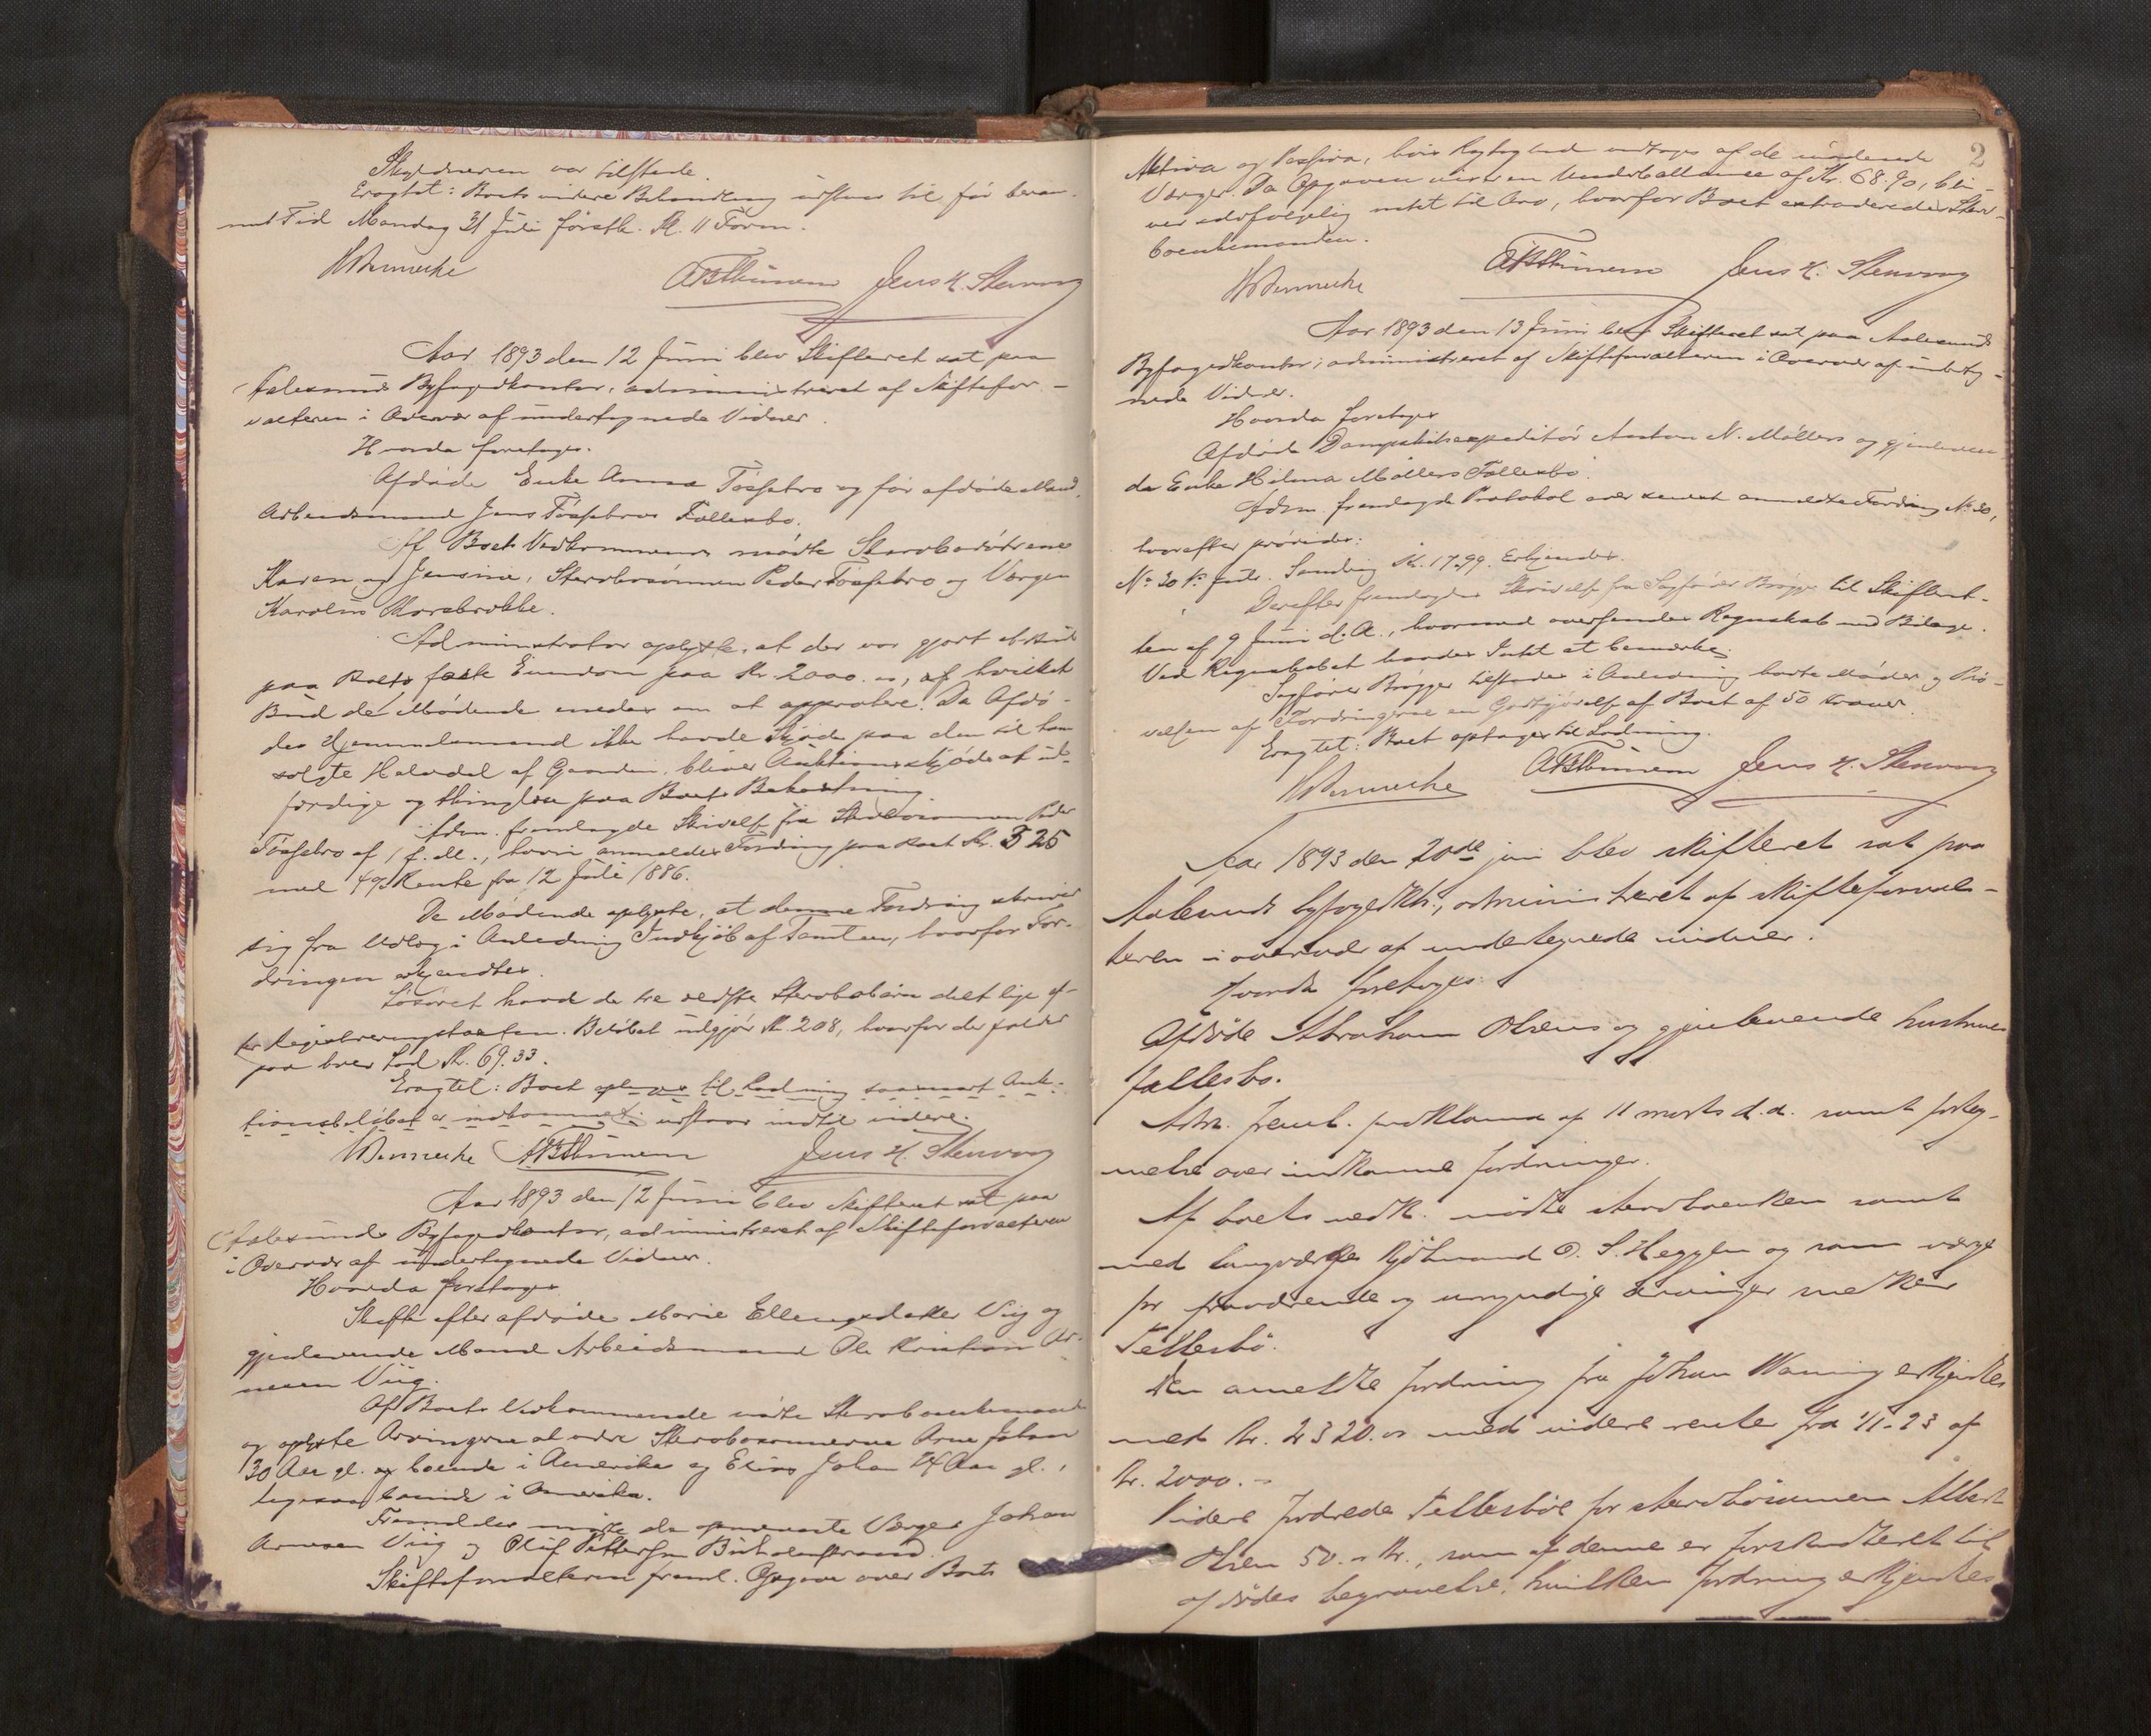 Skyldneren var tilstede.
Eragtet: Boets videre Behandling udstaar til før beram-
met Tid Mandag 31 Juli førstk. Kl. 11 Form.
Jens K. Stenvog
Aar 1893 den 12 Juni blev Skifteret sat paa
Aalesunds Byfogedkontor, administreret af Skiftefor-
valteren i Overvær af undertegnede Vidner.
Hvorda foretoges.
Afdøde Enke Anna Fossebro og før afdøde Mand,
Arbeidsmand Jens Fossebros Fællesbo.
Af Boets Vedkommende mødte Stervbodøtrene
Karen og Jensine, Stervbosønnen Peder Fossebro og Værgen
Karolus
Administrator oplyste, at der var gjort et Bud
paa Boets faste Eiendom paa Kr. 2000.00, af hvilket
Bud de Mødende enedes om at approbere. Da Afdø-
des Hjemmelsmand ikke havde Skjøde paa den til ham
solgte Halvdel af Gaarden, bliver Auktionsskjøde at ud-
færdige og thinglæse paa Boets Bekostning.
Adm. fremlagde Skrivelse fra Stervbosønnen Peder
Fossebro af 1 f. M., hvori anmeldes Fordring paa Boet Kr. 525
med 4% Rente fra 12 Juli 1886.
De Mødende oplyste, at denne Fordring skriver
sig fra Udlæg i Anledning Indkjøb af Tomten, hvorfor For-
dringen erkjendtes.
Løsøret havde de tre ældste Stervbobørn delt lige ef-
ter Registreringstaxten. Beløbet udgjør Kr. 208, hvorfor der falder
paa hver Lod Kr. 69.33.
Eragtet: Boet optages til Lodning saasnart Auk-
tionsbeløbet er indkommet. udstaar indtil videre.
Jens K. Stenvog
Aar 1893 den 12 Juni blev Skifteret sat paa
Aalesunds Byfogedkontor, administreret af Skifteforvalteren
i Overvær af undertegnede Vidner.
Hvorda foretoges
Skifte efter afdøde Marie Ellingsdatter Viig og
gjenlevende Mand Arbeidsmand Ole Kristian Ar-
nesen Viig.
Af Boets Vedkommende mødte Stervboenkemanden
og oplyste Arvingerne at være Stervbosønnerne Arne Johan
30 Aar gl. og boende i Amerika og Elias Johan 24 Aar gl.,
ligesaa boende i Amerika.
Fremdeles mødte de opnævnte Værger Johan
Arnesen Viig og Oluf Pettersen
Skifteforvalteren freml. Opgave over Boets
2
Aktiva og Passiva, hvis Rigtighed vedtoges af de mødende
Værger. Da Opgaven viste en Underballance af Kr. 68.90, bli-
ver selvfølgelig intet til Arv, hvorfor Boet extraderedes Sterv-
boenkemanden.
Jens K. Stenvog
Aar 1893 den 13 Juni blev Skifteret sat paa Aalesunds
Byfogedkontor, administreret af Skifteforvalteren i Overvær af underteg-
nede Vidner.
Hvorda foretoges
Afdøde Dampskibsexpeditør Anton N. Møllers og gjenleven-
de Enke Hilma Møllers Fællesbo.
Adm. fremlagde Protokol over senest anmeldte Fordring No 30,
hvorefter prøvedes:
No 30 Kr. 17.99. Erkjendes.
Derefter fremlagdes Skrivelse fra Sagfører Brøgger til Skifteret-
ten af 9 Juni d. A., hvormed oversendes Regnskab med Bilage.
Ved Regnskabet havdes Intet at bemærke.
Sagfører Brøgger tilstodes i Anledning borte Møder og Prø-
velsen af Fordringerne en Godtgjørelse af Boet af 50 Kroner.
Eragtet: Boet optages til Lodning.
Jens K. Stenvog
Aar 1893 den 20de juni blev skifteret sat paa
Aalesunds byfogedktr., administreret af skifteforval-
teren i overvær af undertegnede vidner.
Hvorda foretoges:
Afdøde Abraham Olsens og gjenlevende hustrues
fællesbo.
Adm. freml. proklama af 11 marts d. a. samt forteg-
nelse over indkomne fordringer.
Af boets vedk. mødte stervboenken samt
med laugværge kjøbmand O. S. Heggen og som værge
for fraværende og umyndige arvinger
Tellesbø.
Den anmeldte fordring fra Johan Waning erkjendtes
med Kr. 2320.00 med videre renter fra 11-23 af
Kr. 2000.-
Videre fordrede Tellesbø for stervbosønnen Albert
Olsen 50.- kr., som af denne er forskudteret til
afdødes begravelse, hvilken fordring erkjendtes